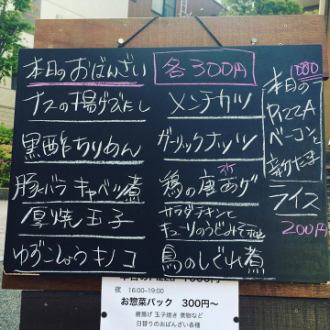 本日のおばんざい
各300円
ナスの揚げびたし
メンチカツ
黒酢ちりめん
ガーリックナッツ
豚バラキャベツ煮
鶏の唐あげ
厚焼玉子
サラダチキンと
キューリのうどみそ
ゆずこしょうキノコ
鳥のしぐれ煮
本日の
PIZZA
ベーコンと
ライス
200円
夜 16:00~19:00
お惣菜パック 300円~
唐揚げ 玉子焼き 煮物など
日替りのおばんざい各種